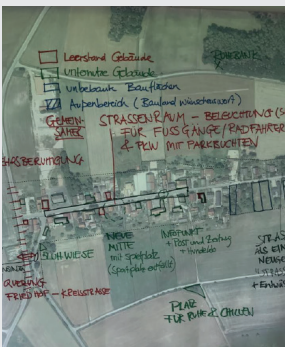 Leerstand Gebäude
untenutze Gebäude
unbebaute Bauflächen
Außenbereich (Bauland wünschenswert)
RUHEBANK
GEMEIN-
SAMER
STRASSENRAUM – BELEUCHTUNG
FÜR FUSSGÄNGE/RADFAHRER
& PKW MIT PARKBUCHTEN
HRSBERUHIGUNG
WIESE
NEUE
MITTE
mit Spielplatz
(Sportplatz entfällt)
INFOPUNKT
+ Post und Zeitung
+ Hundeklo
STRA
ALS EIN
NEUGE
QUERUNG
FRIEDHOF – KREISSTRASSE
PLATZ
FÜR RUHE & CHILLEN